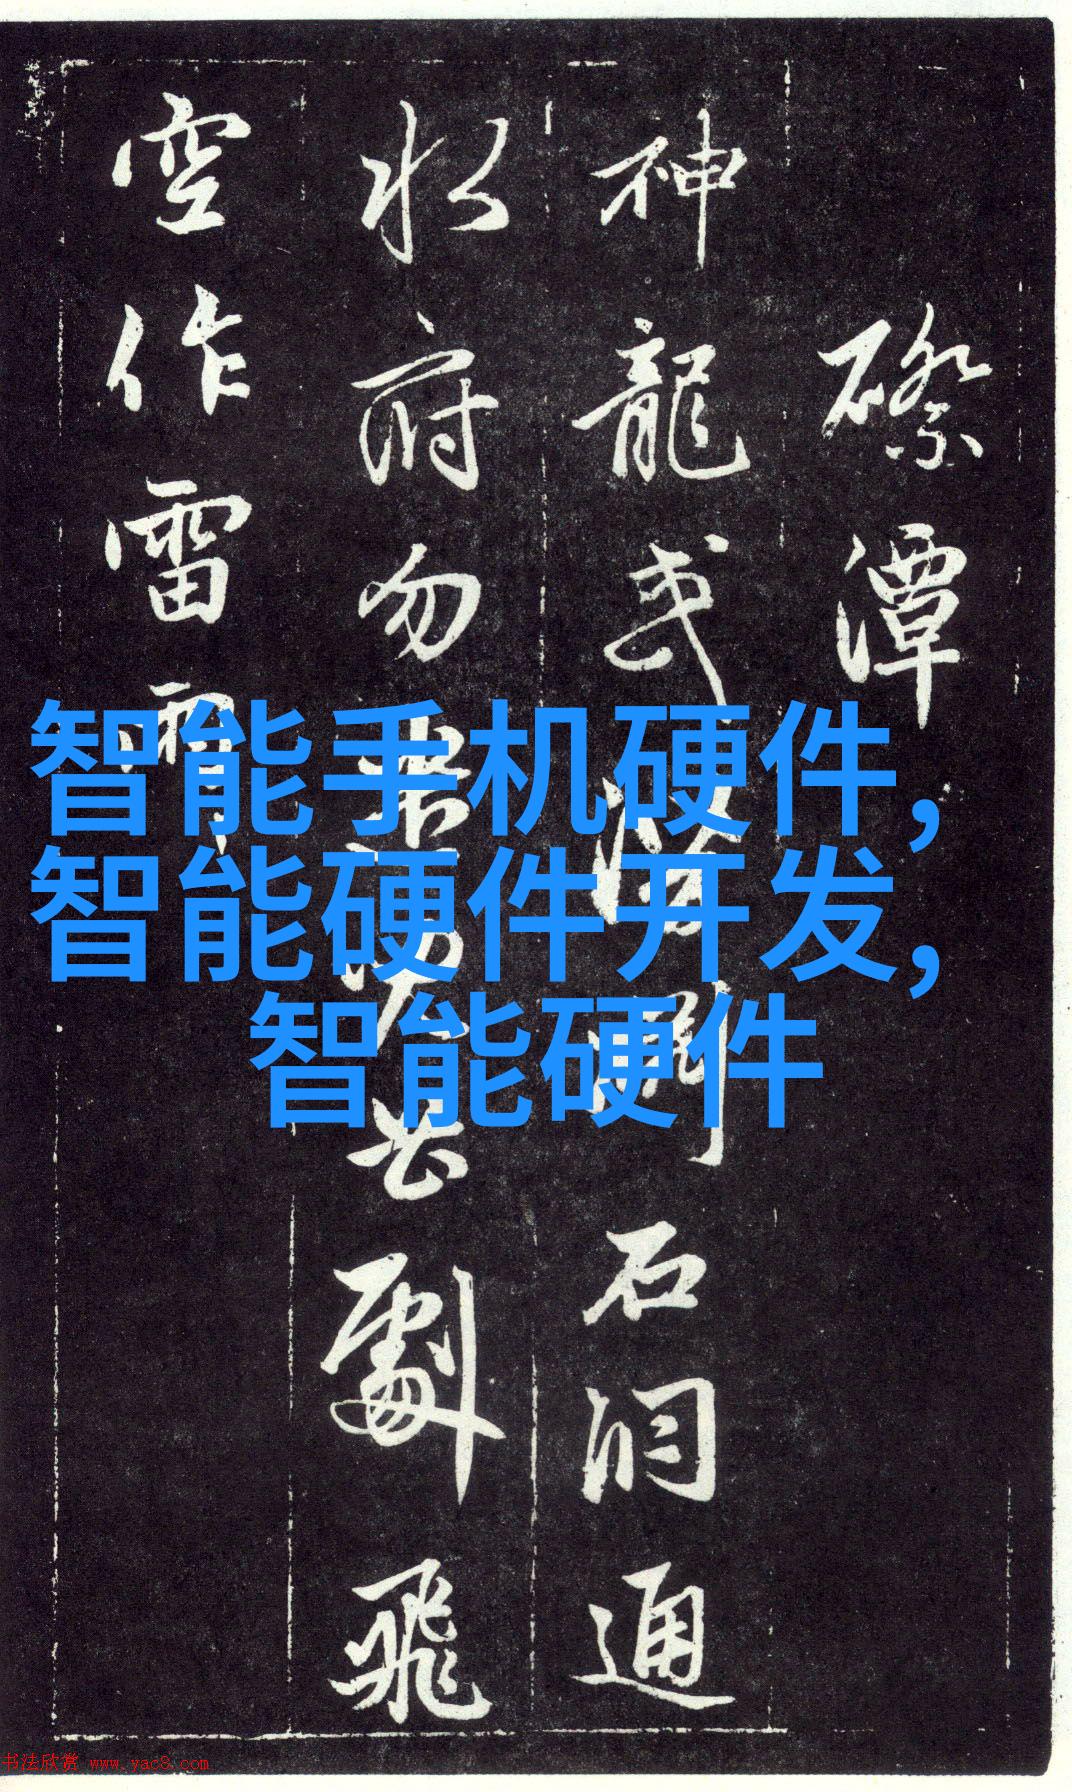 潭
神龍或石洞通
水府勿飛
空作雷雨
智能手机硬件，
智能硬件开发，
智能硬件
书法欣赏 www.yac8.com